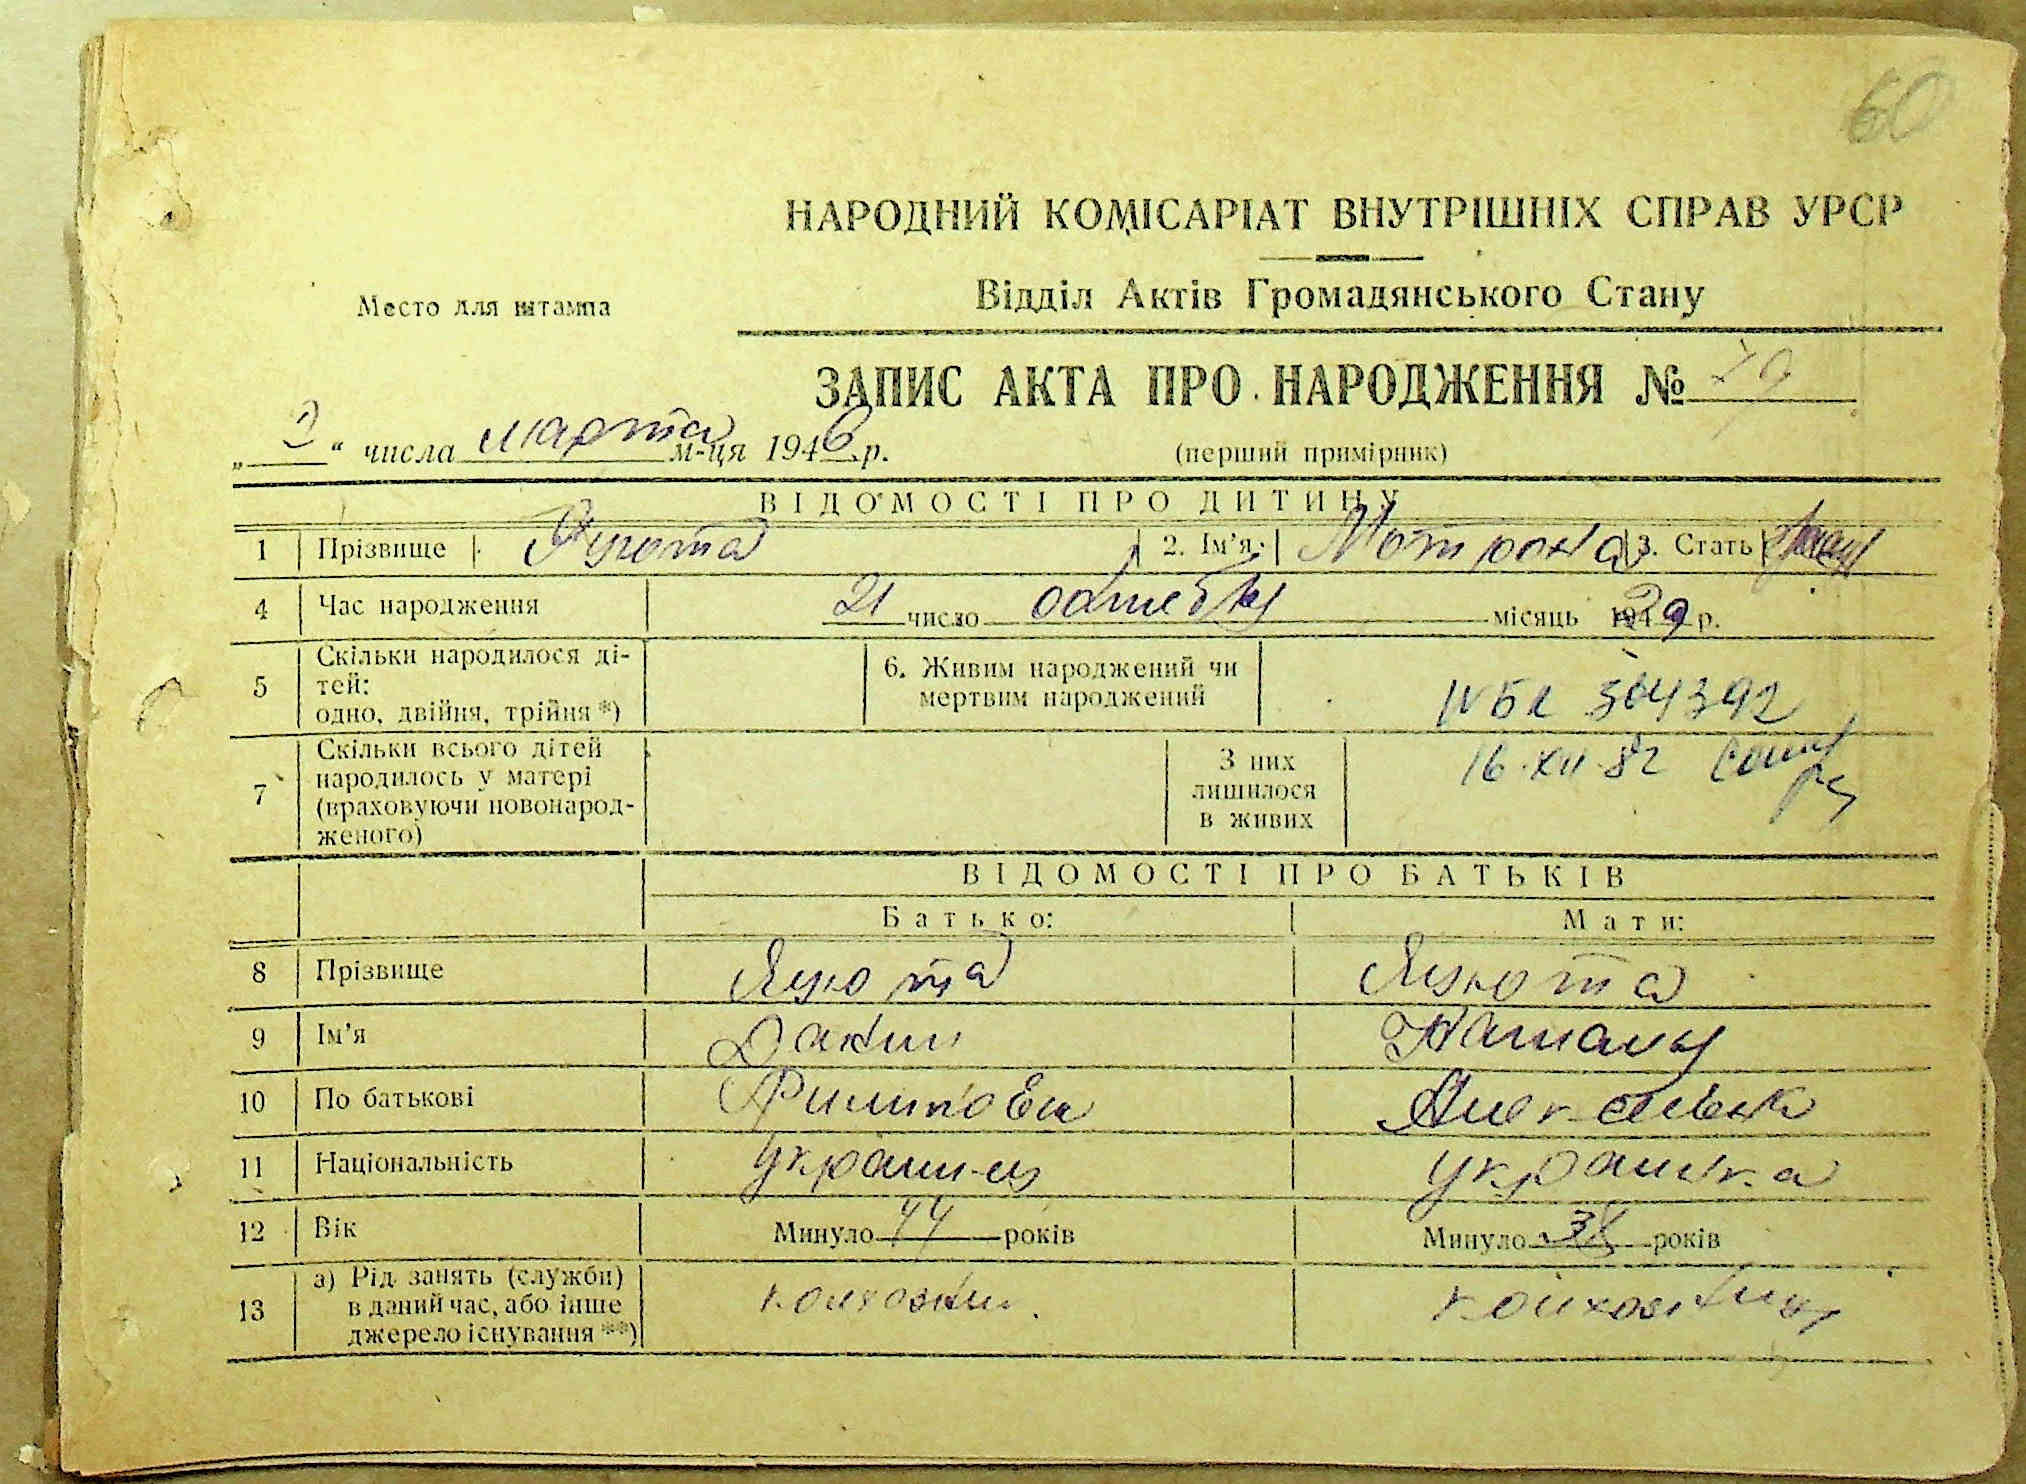 60
НАРОДНИЙ КОМІСАРІАТ ВНУТРІШНІХ СПРАВ УРСР
Место для штампа
Відділ Актів Громадянського Стану
ЗАПИС АКТА ПРО НАРОДЖЕННЯ № 79
„ 3 “ числа марта м-ця 1946 р.
(перший примірник)
ВІДОМОСТІ ПРО ДИТИНУ
1 Прізвище 2. Ім'я Мотрона 3. Стать
4 Час народження 21 число місяць р.
5 Скільки народилося ді-
тей:
одно, двійня, трійня *)
6. Живим народжений чи
мертвим народжений
7 Скільки всього дітей
народилось у матері
(враховуючи новонарод-
женого)
З них
лишилося
в живих
16.XII.82
ВІДОМОСТІ ПРО БАТЬКІВ
Батько: Мати:
8 Прізвище
9 Ім'я Данил
10 По батькові
11 Національність украинец украинка
12 Вік Минуло 44 років Минуло 38 років
13 а) Рід занять (служби)
в даний час, або інше
джерело існування **)